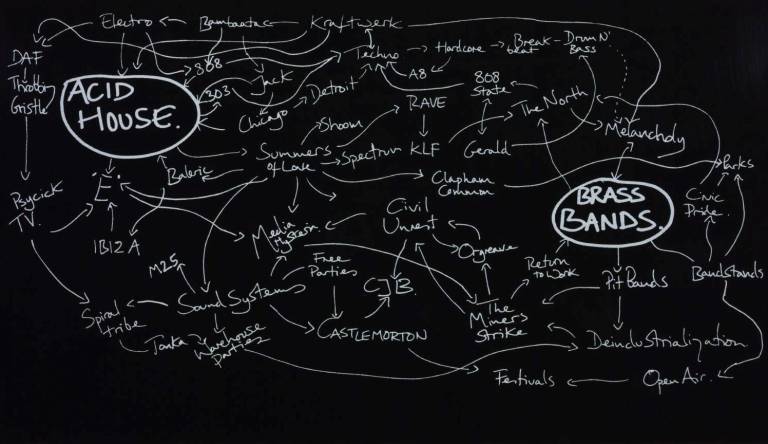 Electro
Bambaata
Kraftwerk
DAF
808
Techno
Hardcore
Break
beat
Drum N'
Bass
Throbbing
Gristle
ACID
HOUSE.
303
Jack
Detroit
A8
808
State
Chicago
RAVE
The North
Melancholy
Shoom
Summers
of Love
Spectrum
KLF
Gerald
Parks
Baleric
Clapham
Common
Psycick
TV.
'E'
BRASS
BANDS.
Civic
Pride.
IBIZA
Media
Hysteria.
Civil
Unrest
Orgreave
M25
Free
Parties
CJB.
Return
to Work
Pit Bands
Bandstands
Spiral
tribe
Sound Systems
CASTLEMORTON
The
Miners
Strike
Tonka
Warehouse
parties
Deindustrialization.
Festivals
Open Air.